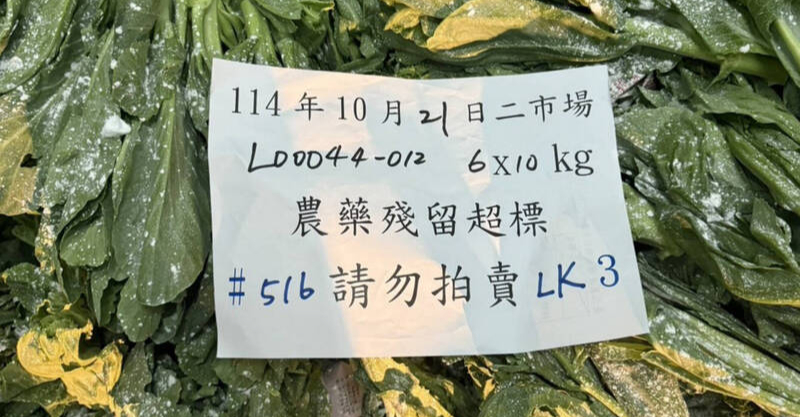 114 年 10 月 21 日二市場
L00044-012 6x10 kg
農藥殘留超標
#516 請勿拍賣 LK 3